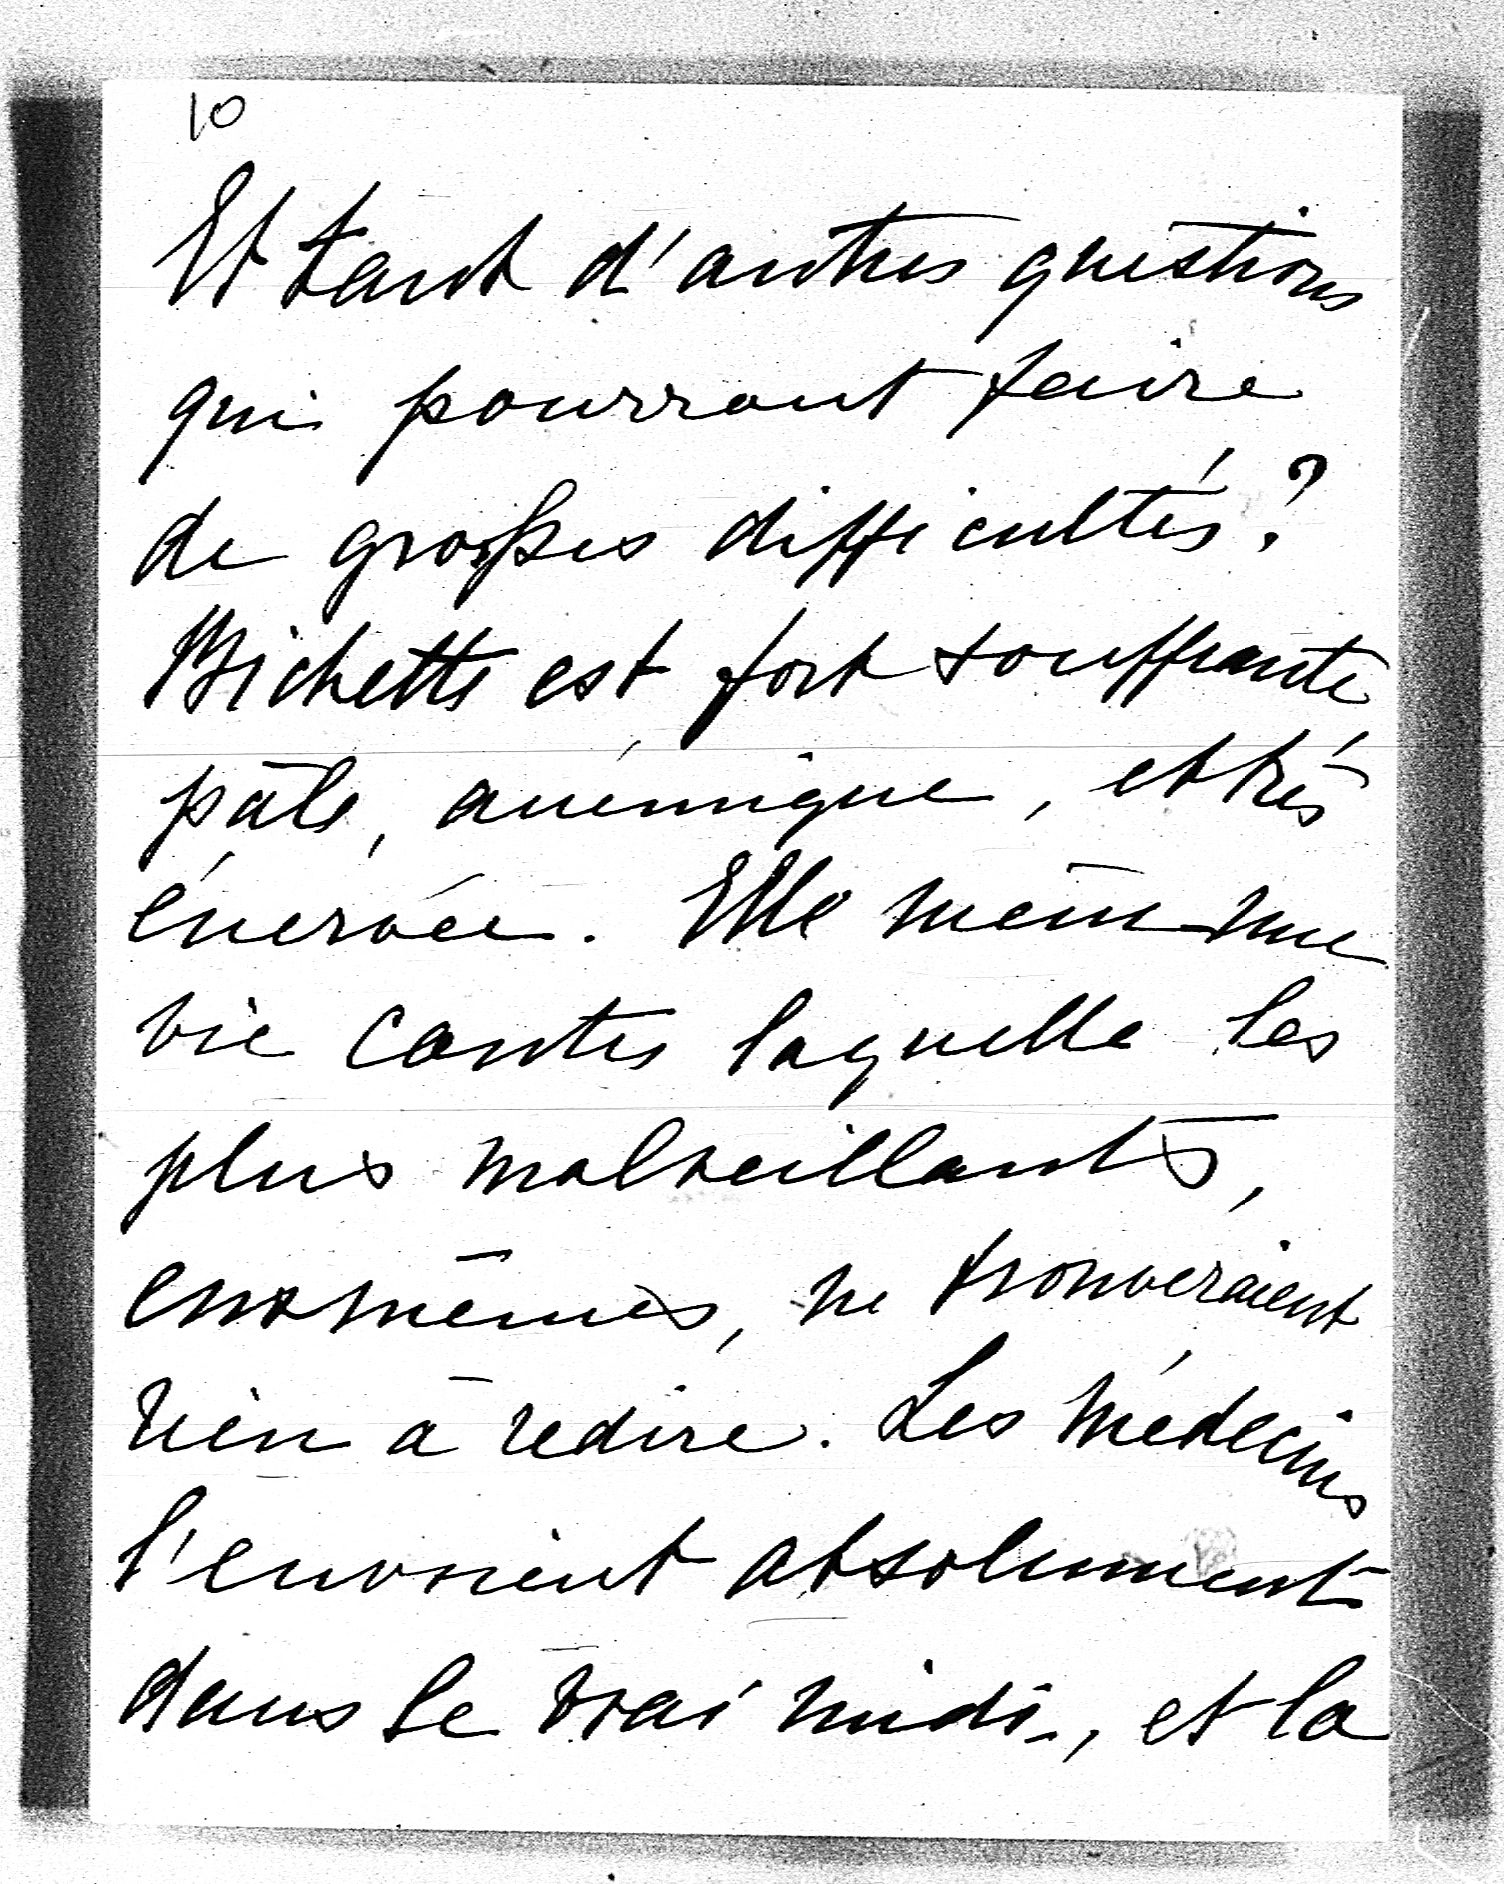 10
Et tant d'autres questions
qui pourront faire
de grosses difficultés?
Bichette est fort souffrante
pâle, anémique, et très
énervée. Elle mène une
vie contre laquelle les
plus malveillants,
eux mêmes, ne trouveraient
rien à redire. Les médecins
l'envoient absolument
dans le vrai midi, et la